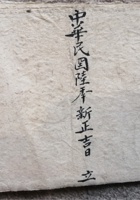 中華民国陸年新正吉日 立